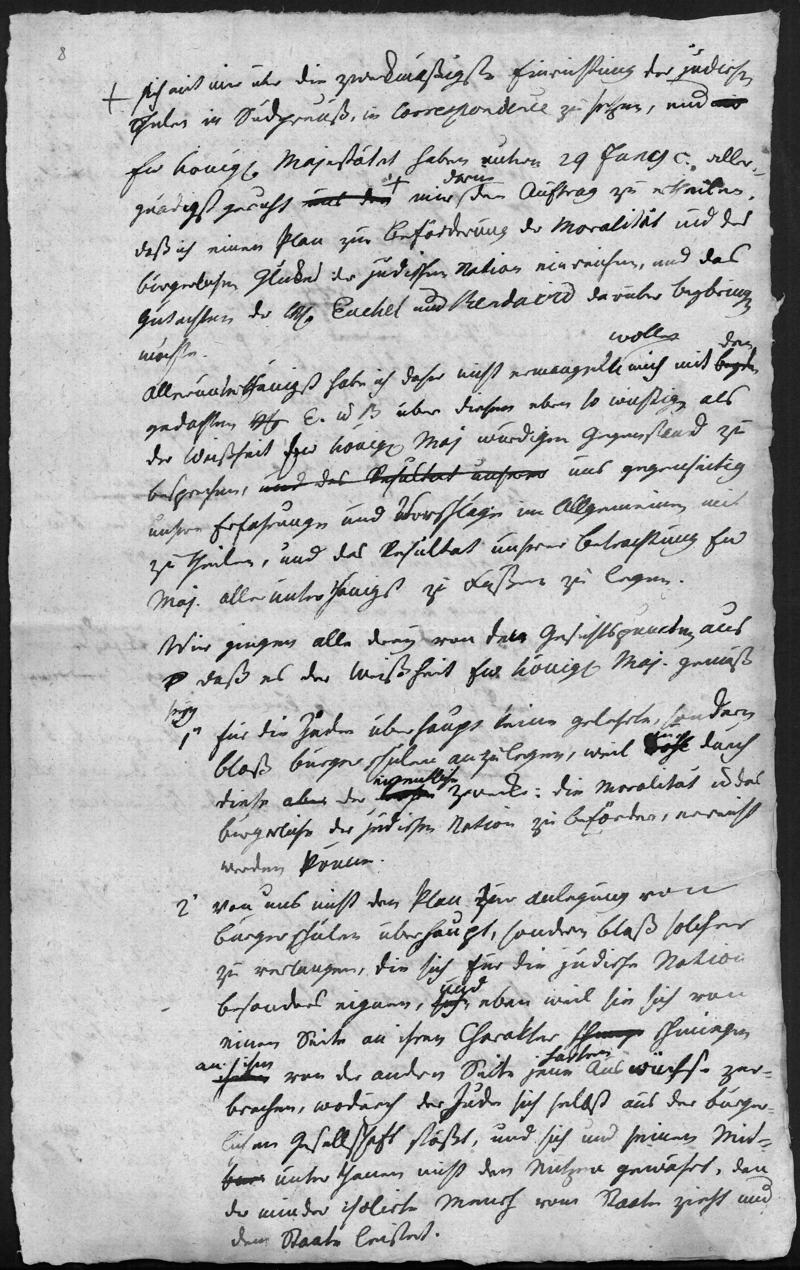 8
+ sich mit mir über die zweckmäßigste Einrichtung der jüdischen
Schulen in Südpreuß. in Correspondence zu setzen, und
Ew Königl Majestät haben unterm 29 Jung c. aller-
gnädigst geruht + mir den Auftrag zu ertheilen,
daß ich einen Plan zur Beförderung der Moralität und des
bürgerlichen Glückes der jüdischen Nation einreichen, und das
Gutachten der HE Euchel und Bendavid darüber beybringen
möchte.
Allerunterthänigst habe ich daher nicht ermangeln wollen mich mit den
gedachten HE E. u B über diesen eben so wichtigen als
der Weißheit Ew Königl Maj würdigen Gegenstand zu
besprechen, und das Resultat unserer uns gegenseitig
unsere Erfahrungen und Vorschläge im Allgemeinen mit
zu theilen, und das Resultat unserer Betrachtung Ew
Maj. allerunterthänigst zu Füßen zu legen.
Wir gingen alle drey von dem Gesichtspuncten aus
daß es der Weißheit Ew. Königl Maj. gemäß
sey
1' für die Juden überhaupt keine gelehrte, sondern
bloß Bürgerschulen anzulegen, weil durch
diese aber der eigentliche Zweck: die Moralität u das
bürgerliche der jüdischen Nation zu befördern, erreicht
werden könne.
2' von uns nicht den Plan zur Anlegung von
Bürgerschulen überhaupt, sondern bloß solcher
zu verlangen, die sich für die jüdische Nation
besonders eignen, und eben weil sie sich von
einen Seite an ihren Charakter schmiegen
von der andern Seite jene Auswüchse zer-
brechen, wodurch der Jude sich selbst aus der bürger-
lichen Gesellschaft stößt, und sich und seinen Mit-
unterthanen nicht den Nutzen gewährt, den
der minder isolirte Mensch vom Staate zieht und
dem Staate leistet.